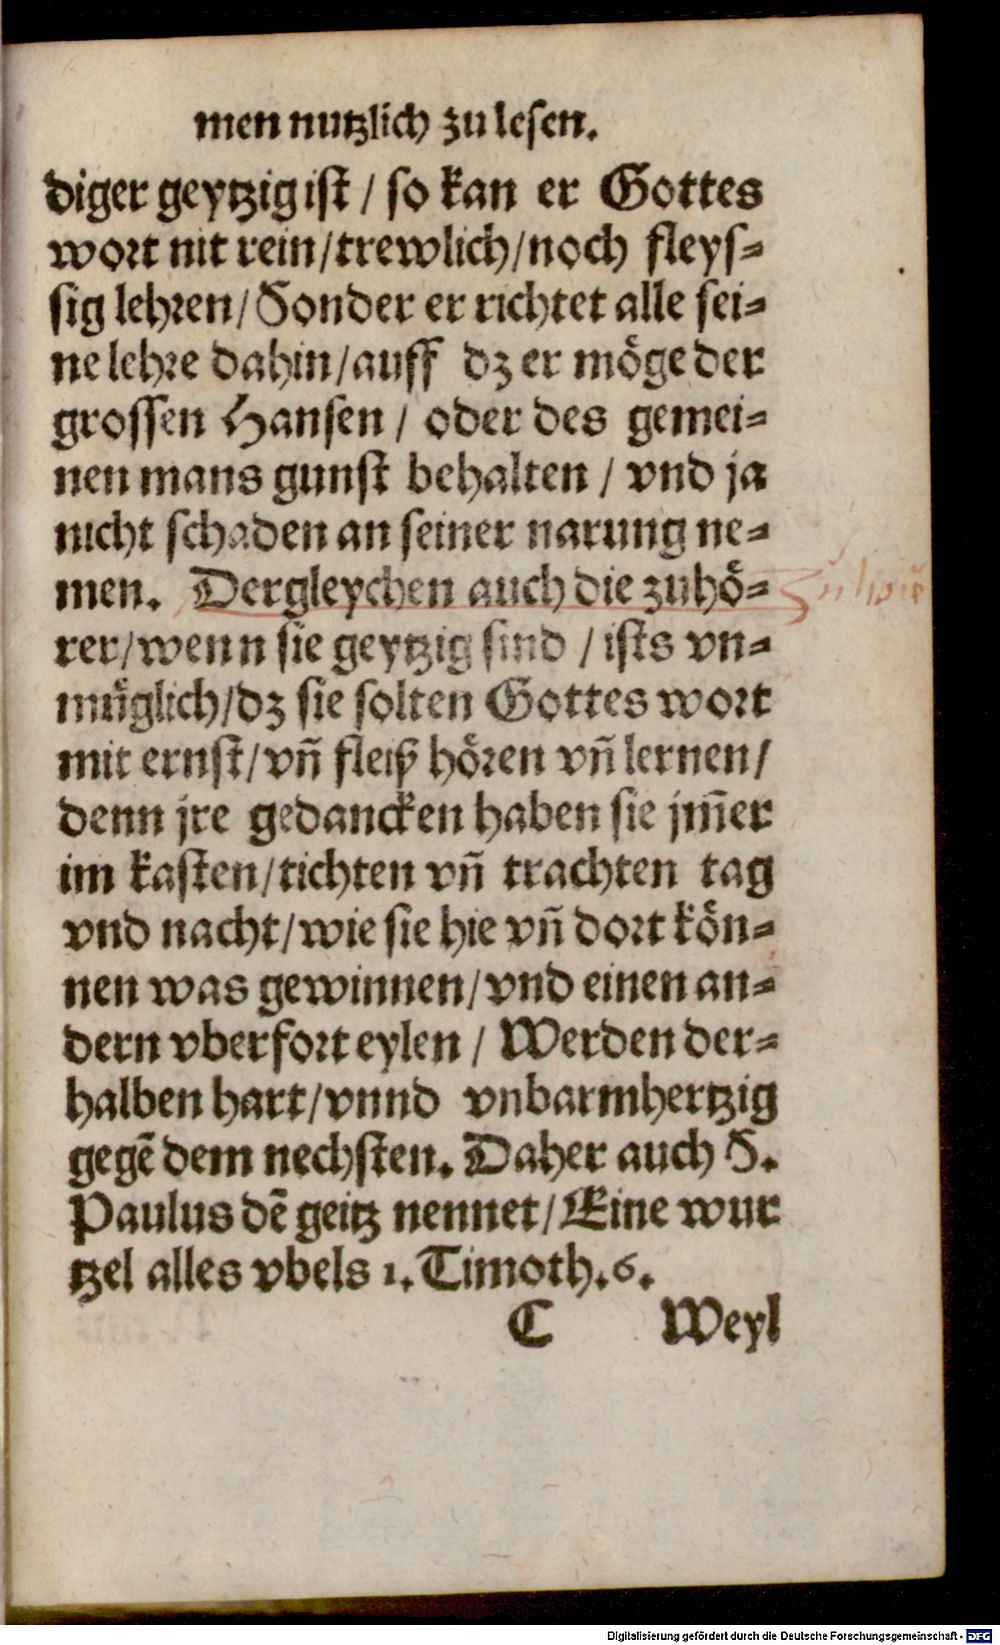 men nutzlich zu lesen.
diger geytzig ist / so kan er Gottes
wort nit rein/trewlich/noch fleys-
sig lehren/Sonder er richtet alle sei-
ne lehre dahin/auff dz er möge der
grossen Hansen / oder des gemei-
nen mans gunst behalten / vnd ja
nicht schaden an seiner narung ne-
men. Dergleychen auch die zuhö-
rer/wenn sie geytzig sind / ists vn-
müglich/dz sie solten Gottes wort
mit ernst/vñ fleiß hören vñ lernen/
denn jre gedancken haben sie jm̃er
im kasten/tichten vñ trachten tag
vnd nacht/wie sie hie vñ dort kön-
nen was gewinnen/vnd einen an-
dern vberfort eylen / Werden der-
halben hart/vnnd vnbarmhertzig
gegẽ dem nechsten. Daher auch S.
Paulus dẽ geitz nennet/Eine wur
tzel alles vbels 1. Timoth. 6.
C Weyl
Digitalisierung gefördert durch die Deutsche Forschungsgemeinschaft - DFG